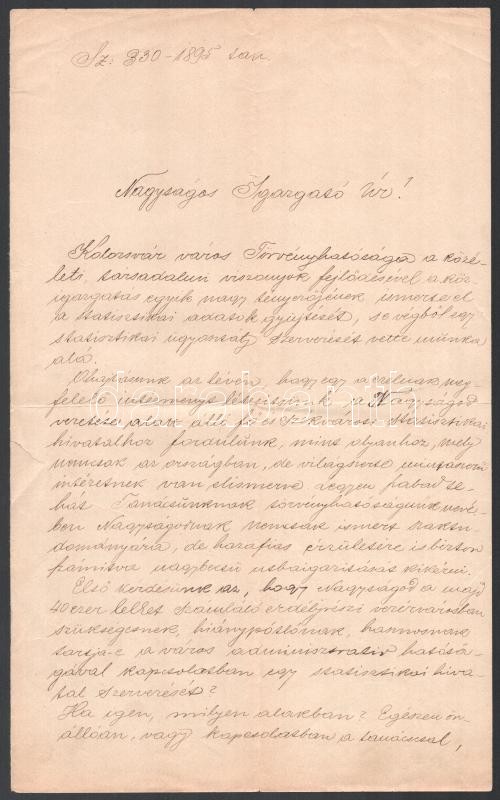 Sz: 330-1895 tan.
Nagyságos Igazgató Úr!
Kolozsvár város Törvényhatósága a közé-
leti, társadalmi viszonyok fejlődésével a köz-
igazgatás egyik nagy tényezőjének ismerte el
a statisztikai adatok gyüjtését, s e végből egy
statisztikai ügyosztály szervezését vette munka
alá.
Óhajtásunk az lévén, hogy egy a czélnak meg-
felelő intézményt létesitsünk a Nagyságod
vezetése alatt álló fő és székvárosi statisztikai
hivatalhoz fordulunk, mint olyanhoz, mely
nemcsak az országban, de világszerte
intézetnek van elismerve. Legyen szabad te-
hát Tanácsunknak törvényhatóságunk nevé-
ben Nagyságodnak nemcsak ismert szaktu-
dományára, de hazafias érzületére is bizton
számitva nagybecsü utbaigazitását kikérni.
Első kérdésünk az, hogy Nagyságod a majd
40 ezer lelket számláló erdélyrészi vezérvárosban
szükségesnek, hiánypótlónak, hasznosnak
tartja-e a város administrativ hatósá-
gával kapcsolatban egy statisztikai hiva-
tal szervezését?
Ha igen, milyen alakban? Egészen ön-
állóan, vagy kapcsolatban a tanácscsal,
darabanth